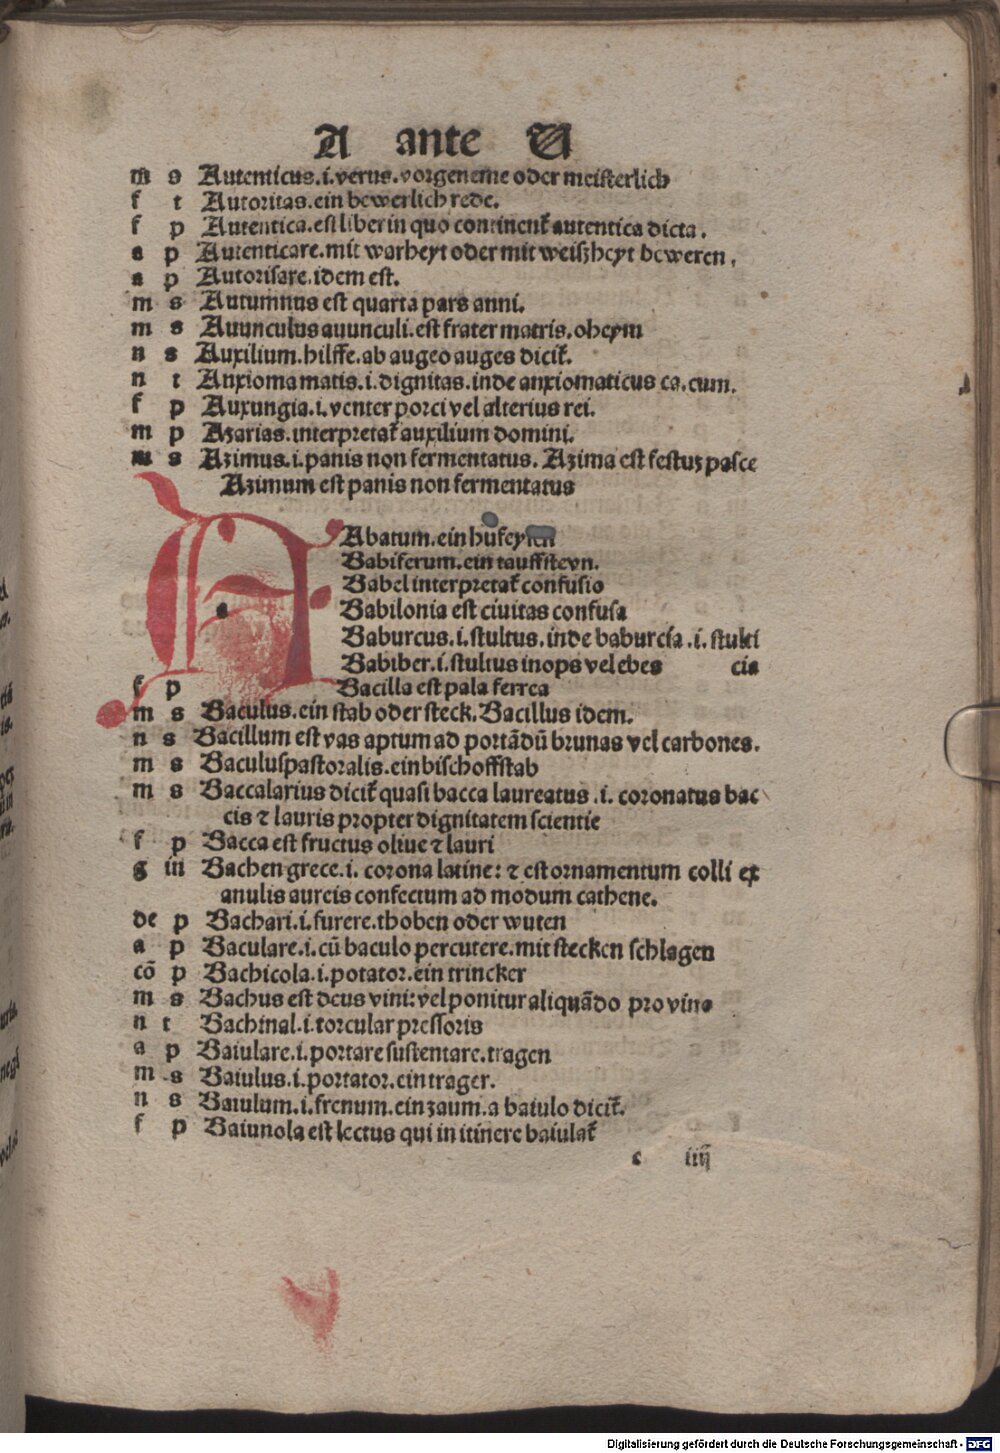 A ante U
m s Autenticus.i.verus.vorgeneme oder meisterlich
f t Autoritas.ein bewerlich rede.
f p Autentica.est liber in quo continent᷑ autentica dicta.
a p Autenticare.mit warheyt oder mit weiszheyt beweren.
a p Autorisare.idem est.
m s Autumnus est quarta pars anni.
m s Avunculus avunculi.est frater matris.oheym
n s Auxilium.hilffe.ab augeo auges dicit᷑.
n t Anxioma matis.i.dignitas.inde anxiomaticus ca.cum.
f p Auxungia.i.venter porci vel alterius rei.
m p Azarias.interpretat᷑ auxilium domini.
m s Azimus.i.panis non fermentatus. Azima est festuʒ pasce
Azimum est panis non fermentatus
Abatum.ein hufeysen
Babiferum.ein tauffsteyn.
Babel interpretat᷑ confusio
Babilonia est civitas confusa
Baburcus.i.stultus.inde baburcia.i.stulti
Babiber.i.stultus inops vel ebes cia
f p Bacilla est pala ferrea
m s Baculus.ein stab oder steck.Bacillus idem.
n s Bacillum est vas aptum ad portādū brunas vel carbones.
m s Baculuspastoralis.ein bischoffstab
m s Baccalarius dicit᷑ quasi bacca laureatus.i. coronatus bac
cis ⁊ lauris propter dignitatem scientie
f p Bacca est fructus olive ⁊ lauri
g in Bachen grece.i. corona latine: ⁊ est ornamentum colli ex
anulis aureis confectum ad modum cathene.
de p Bachari.i.furere.thoben oder wuten
a p Baculare.i.cū baculo percutere.mit stecken schlagen
cō p Bachicola.i.potator.ein trincker
m s Bachus est deus vini:vel ponitur aliquādo pro vino
n t Bachinal.i.torcular pressoris
a p Baiulare.i.portare sustentare.tragen
m s Baiulus.i.portator.ein trager.
n s Baiulum.i.frenum.ein zaum.a baiulo dicit᷑.
f p Baiunola est lectus qui in itinere baiulat᷑
c iiij
Digitalisierung gefördert durch die Deutsche Forschungsgemeinschaft - DFG